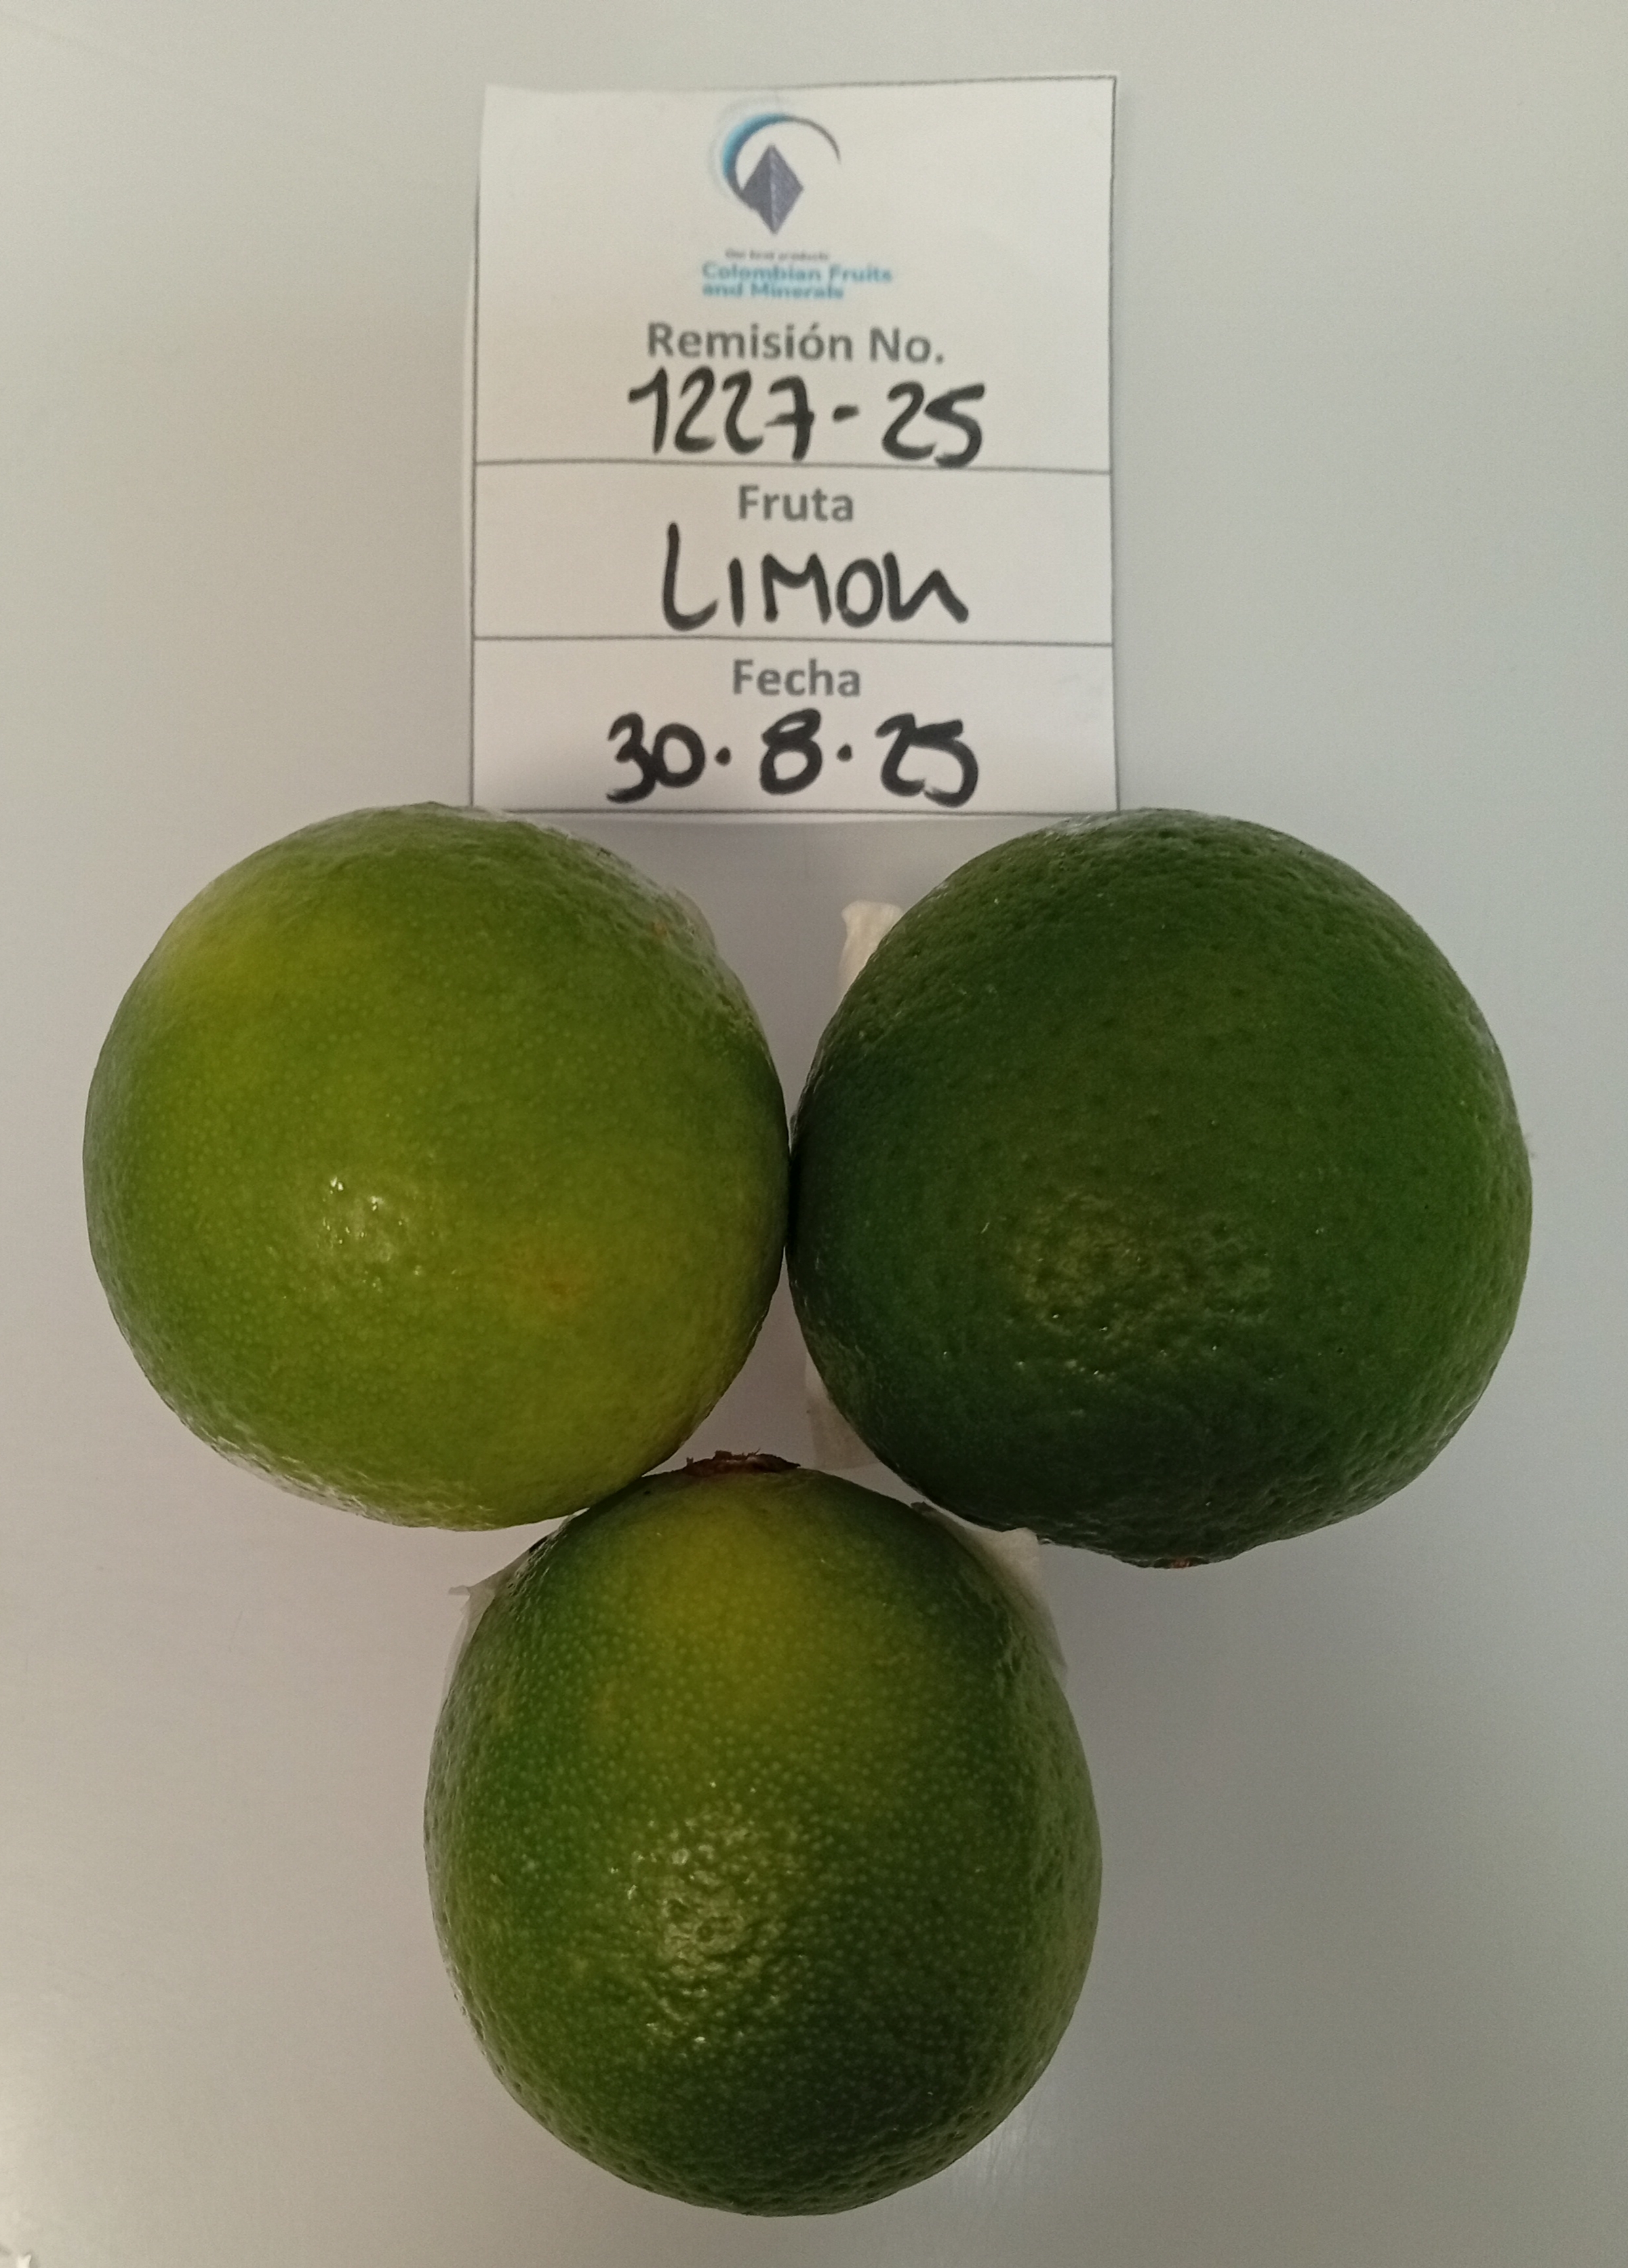 Our best products
Colombian Fruits
and Minerals
Remisión No.
1227-25
Fruta
LIMON
Fecha
30.8.25